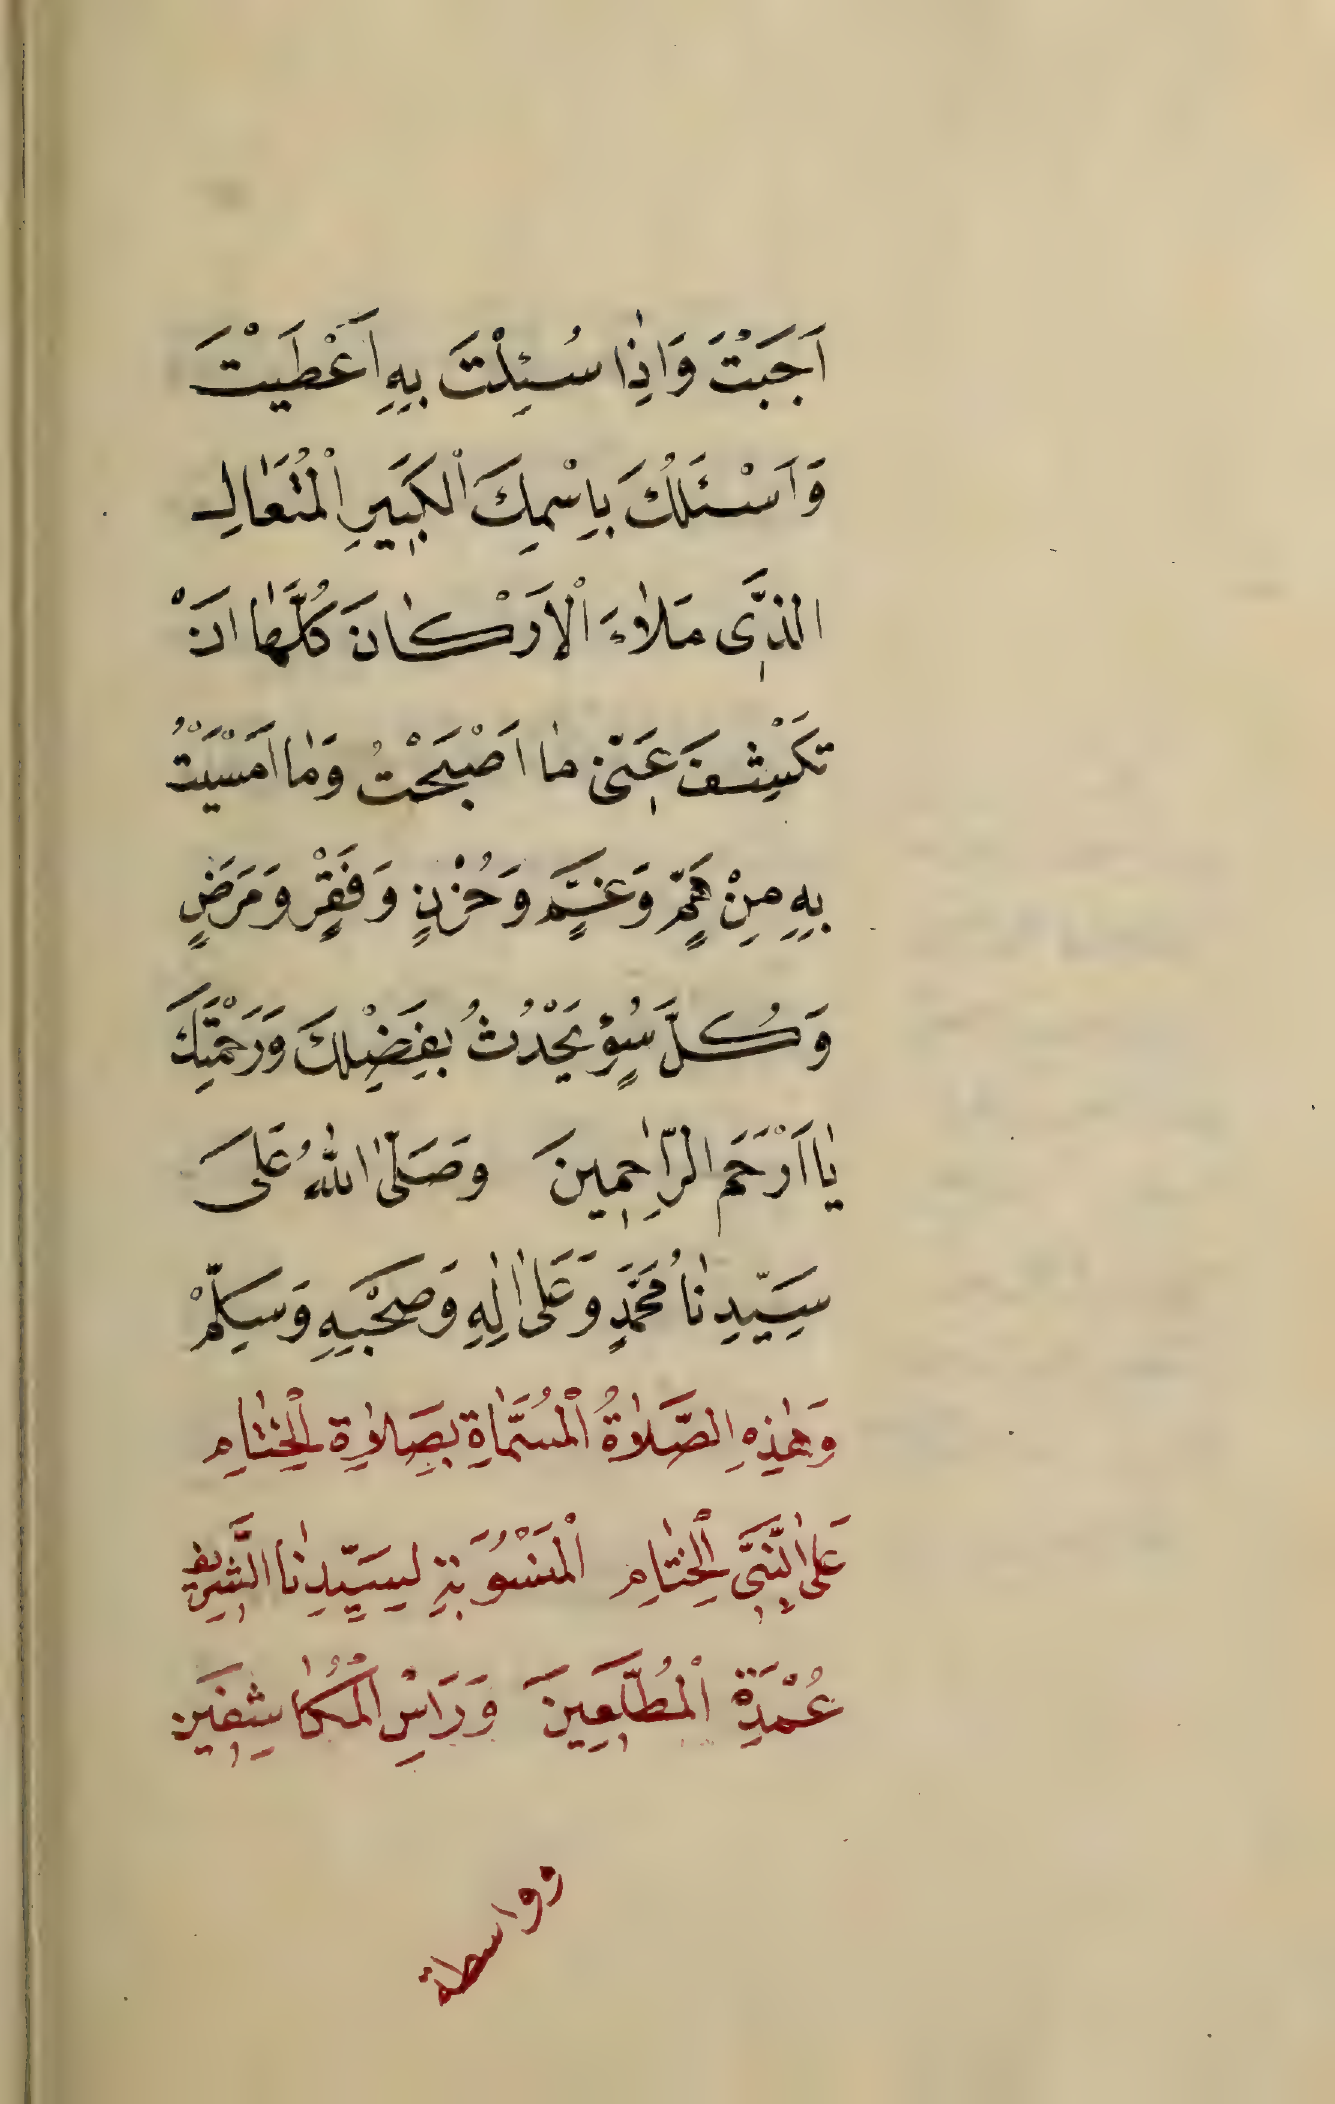 اَجَبْتَ وَاِذَا سُئِلْتَ بِهِ اَعْطَيْتَ
وَاَسْئَلُكَ بِاِسْمِكَ الْكَبَيرِ الْمُتَعَالِ
الذَّى مَلَاءَ الْاَرْكَانَ كُلَّهَا اَنْ
تَكْشِفَ عَنّى مَا اَصْبَحْتُ وَمَا اَمْسَيْتُ
بِهِ مِنْ هَمٍّ وَغَمٍّ وَحُزْنٍ وَفَقْرٍ وَمَرَضٍ
وَكُلَّ سُؤٍ يَحْدُثُ بِفَضْلِكَ وَرَحْمَتِكَ
يَا اَرْحَمَ الرَّاحِمِينَ وصَلَّى اللهُ عَلَى
سَيِّدِنَا مُحَمَّدٍ وَعَلَى اٰلِهِ وَصَحْبِهِ وَسَلِّمْ
وَهٰذِهِ الصَّلَاةُ الْمُسَمَّاةِ بِصَلَاةِ الْخِتَامِ
عَلَى النَّبِىَّ الْخِتَامِ الْمَنْسُوبَةِ لِسَيِّدِنَا الشَّرِيفِ
عُمْدَةِ الْمُطَّلِعِينَ وَرَاسِ الْمُكَاشِفِينَ
وواسطة